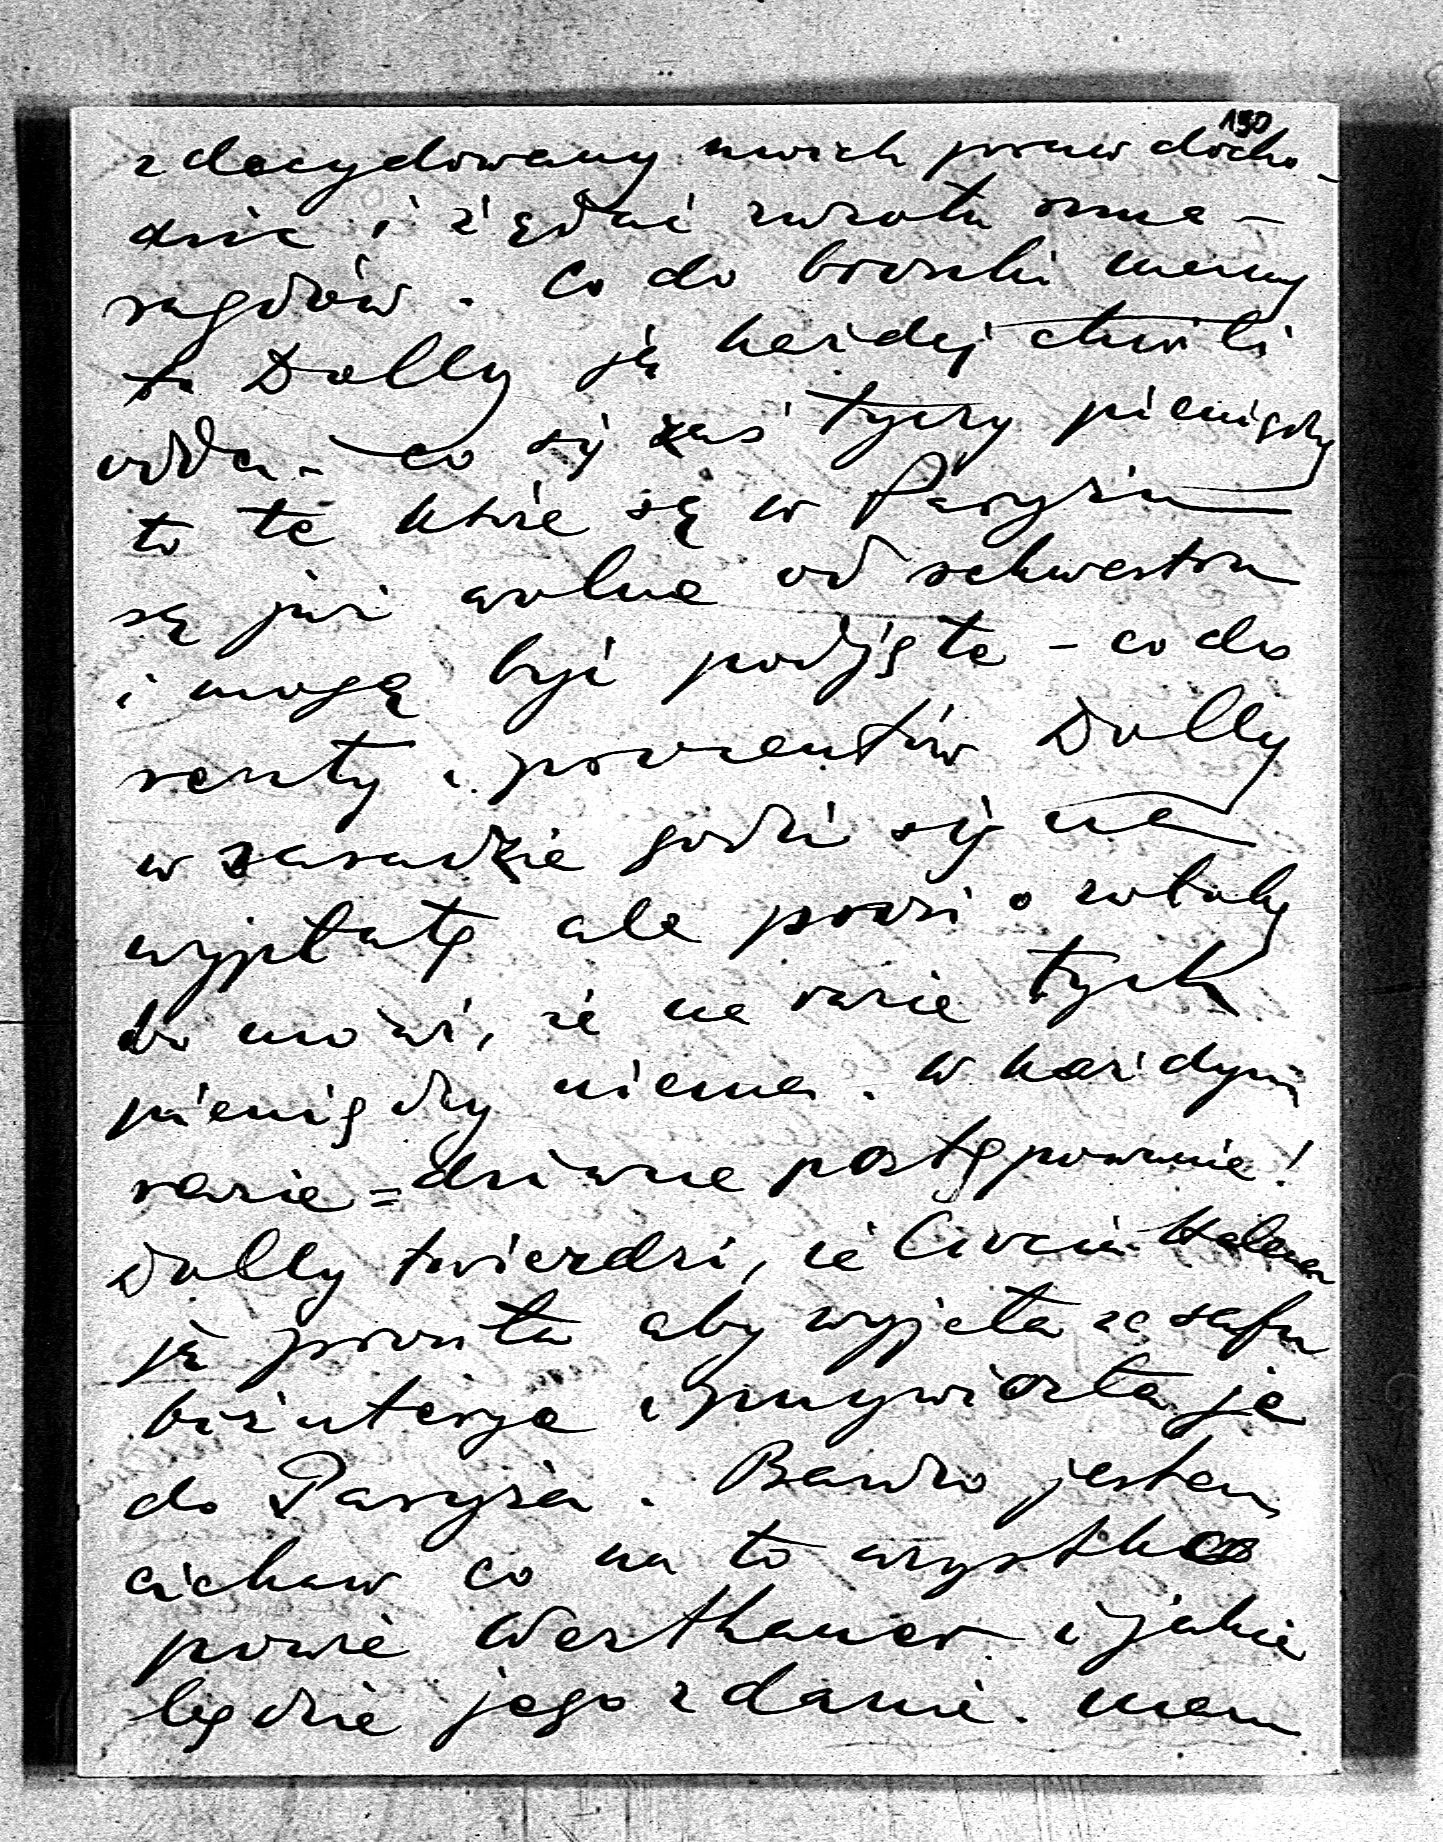 190
zdecydowany swoich praw docho-
dzić i żądać zwrotu szma-
ragdów. Co do broszki mamy
to Dolly ją każdej chwili
odda - co się zaś tyczy pieniędzy
to te które są w Paryżu
są już wolne od sekwestru
i mogą być podjęte - co do
renty i procentów Dolly
w zasadzie godzi się na
wypłatę ale prosi o zwłokę
bo mówi, że na razie tych
pieniędzy niema. W każdym
razie = dziwne postępowanie!
Dolly twierdzi, że Ciocia Helena
ją prosiła aby wyjęła ze safu
biżuterye i przywiozła je
do Paryża. Bardzo jestem
ciekaw co na to wszystko
powie Werthauer i jakie
będzie jego zdanie. Mam